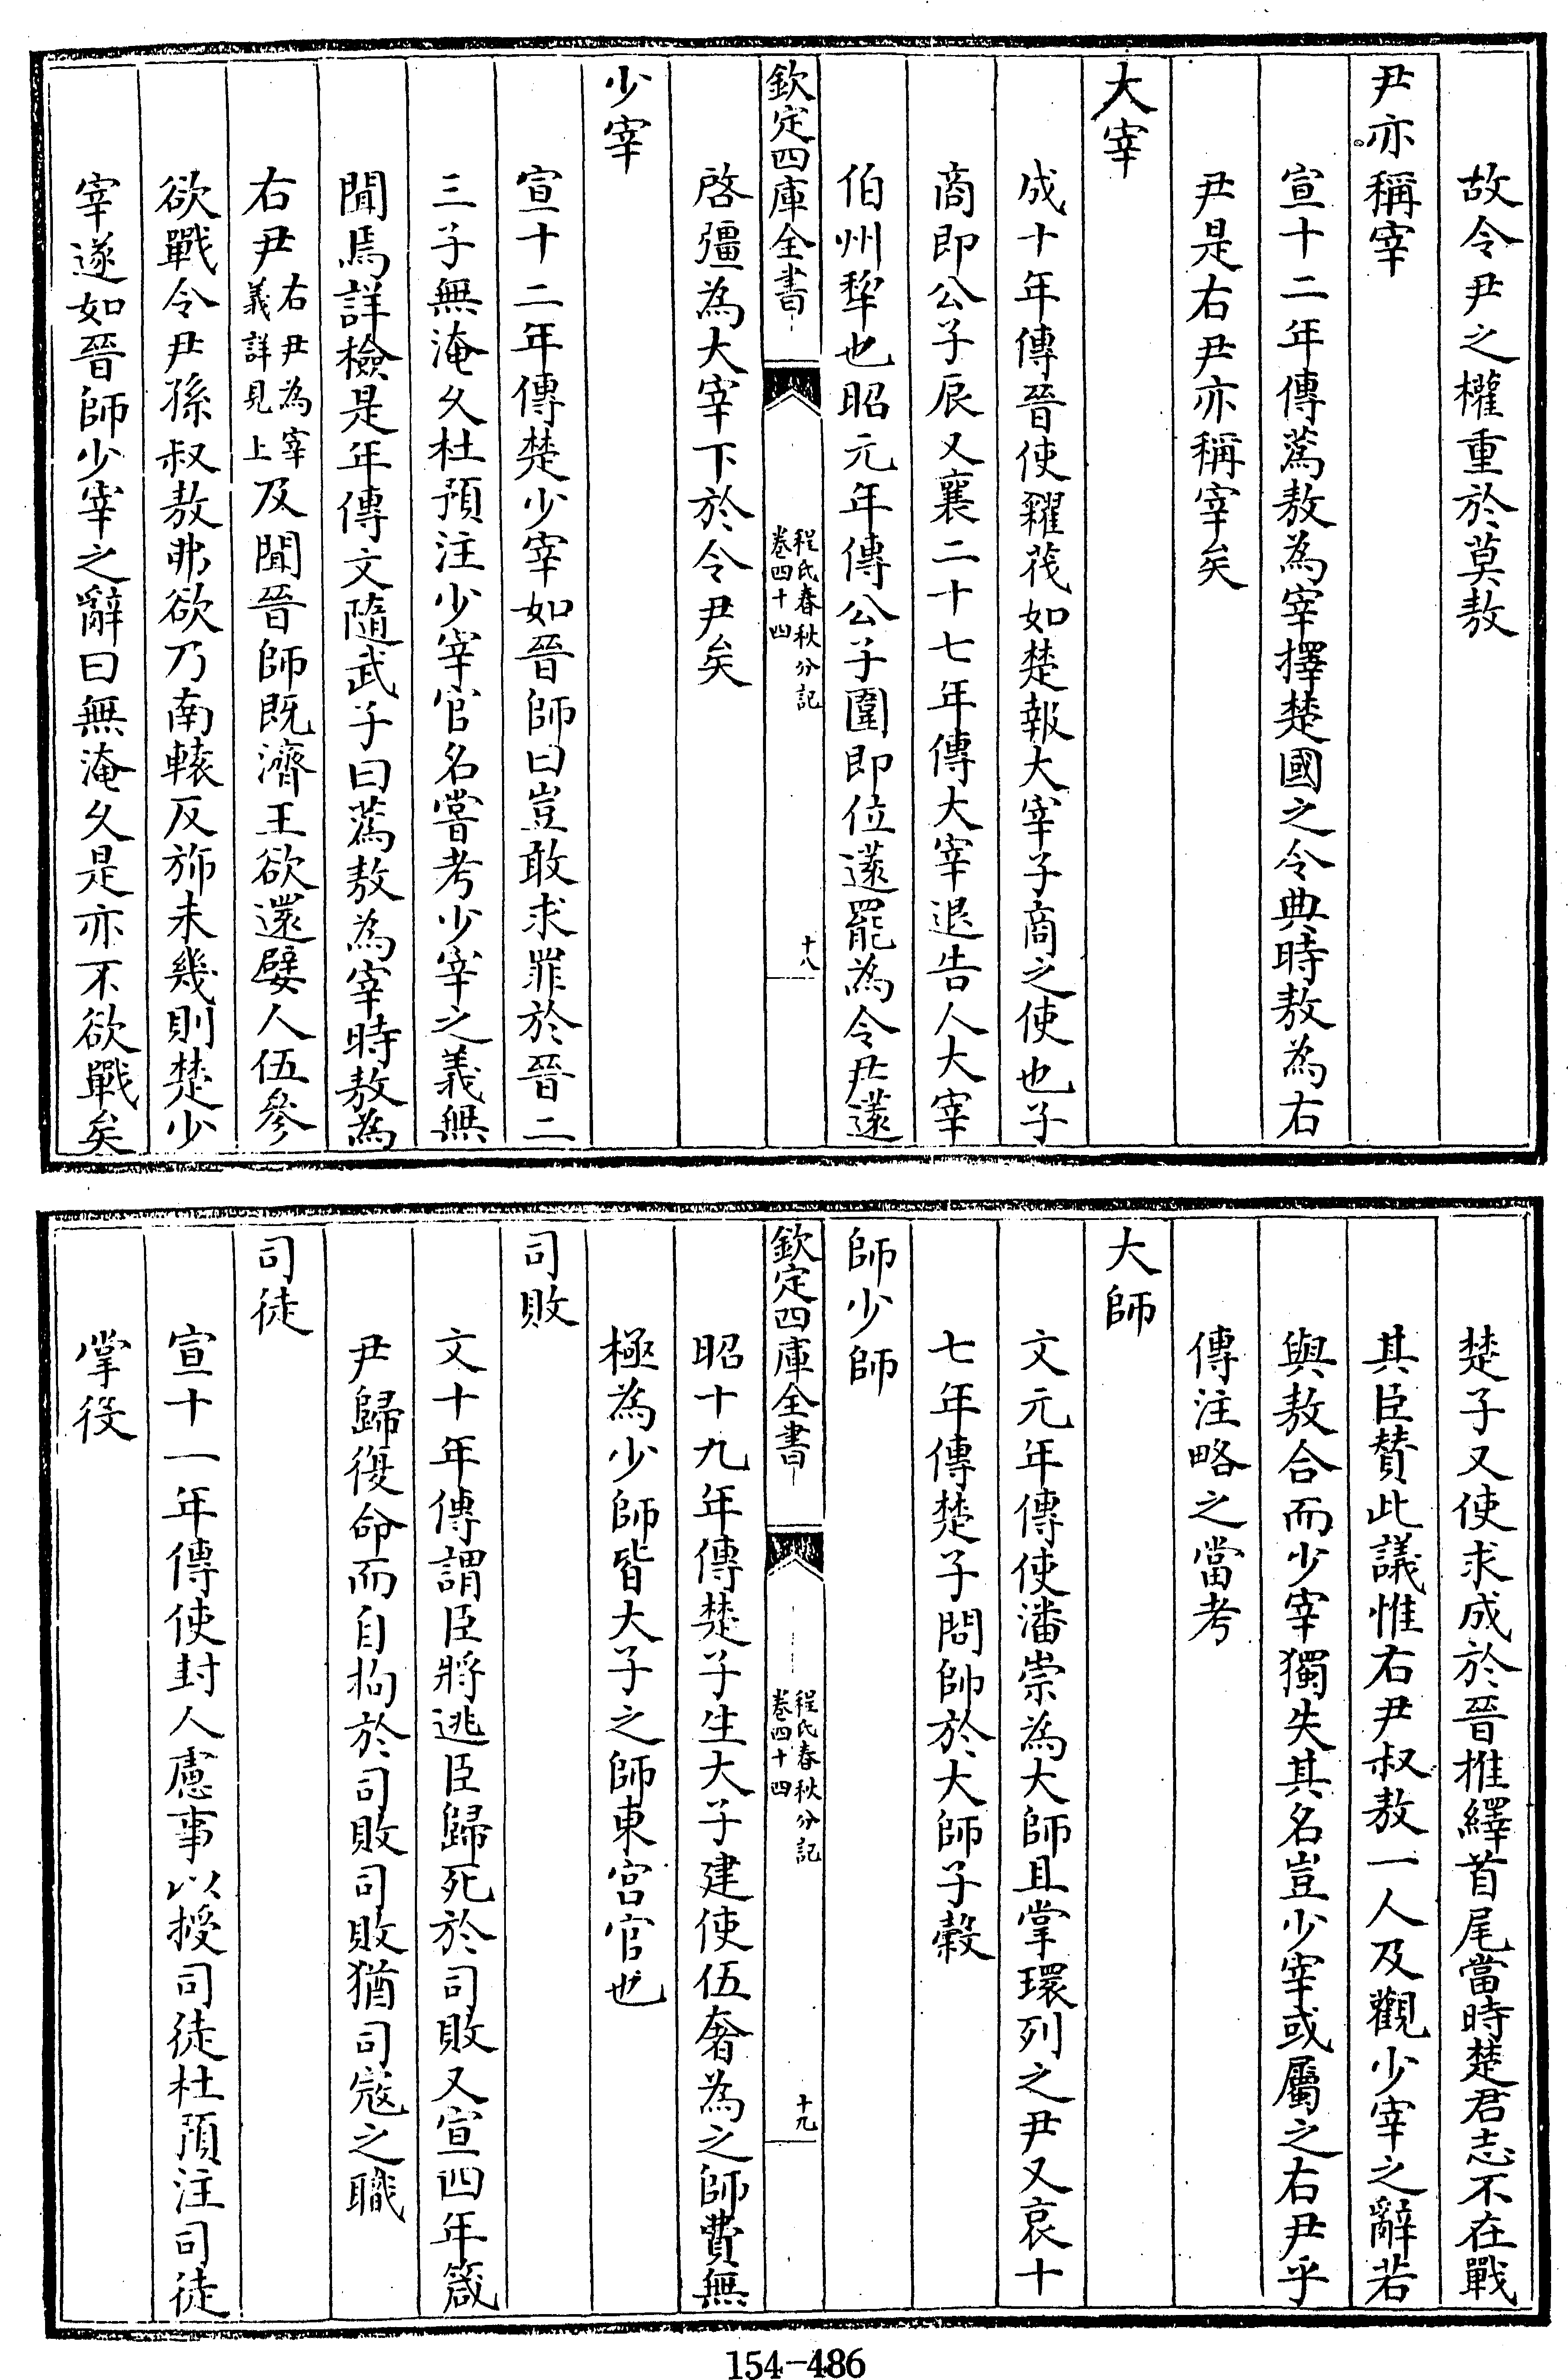 故令尹之權重於莫敖
尹亦稱宰
宣十二年傳蒍敖為宰擇楚國之令典時敖為右
尹是右尹亦稱宰矣
大宰
成十年傳晉使糴茷如楚報大宰子商之使也子
商即公子辰又襄二十七年傳大宰退告人大宰
伯州犂也昭元年傳公子圍即位薳罷為令尹薳
欽定四庫全書
程氏春秋分記
卷四十四
十八
啓彊為大宰下於令尹矣
少宰
宣十二年傳楚少宰如晉師曰豈敢求罪於晉二
三子無淹久杜預注少宰官名嘗考少宰之義無
聞焉詳檢是年傳文隨武子曰蒍敖為宰時敖為
右尹右尹為宰義詳見上及聞晉師既濟王欲還嬖人伍參
欲戰令尹孫叔敖弗欲乃南轅反旆未幾則楚少
宰遂如晉師少宰之辭曰無淹久是亦不欲戰矣
楚子又使求成於晉推繹首尾當時楚君志不在戰
其臣贊此議惟右尹叔敖一人及觀少宰之辭若
與敖合而少宰獨失其名豈少宰或屬之右尹乎
傳注略之當考
大師
文元年傳使潘崇為大師且掌環列之尹又哀十
七年傳楚子問帥於大師子榖
師少師
欽定四庫全書
程氏春秋分記
卷四十四
十九
昭十九年傳楚子生大子建使伍奢為之師費無
極為少師皆大子之師東宮官也
司敗
文十年傳謂臣將逃臣歸死於司敗又宣四年箴
尹歸復命而自拘於司敗司敗猶司寇之職
司徒
宣十一年傳使封人慮事以授司徒杜預注司徒
掌役
154-486